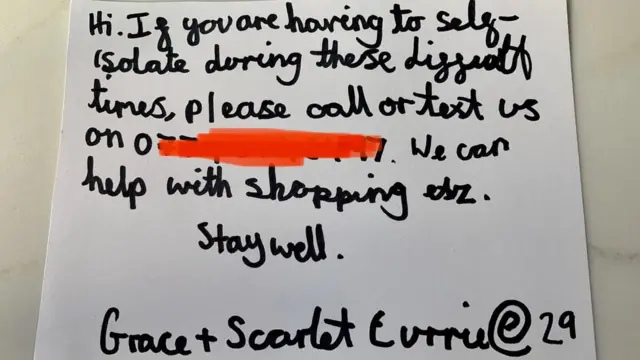 Hi. If you are having to self-
isolate during these difficult
times, please call or text us
on 0 . We can
help with shopping etc.
Stay well.
Grace + Scarlet Currie @ 29